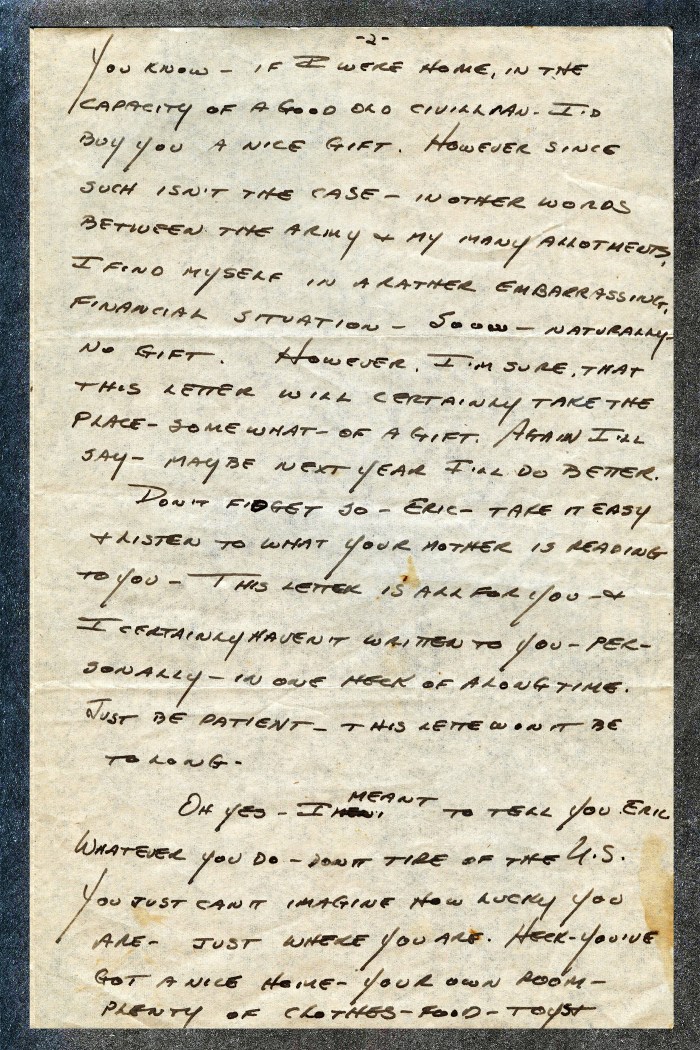 -2-
YOU KNOW - IF I WERE HOME, IN THE
CAPACITY OF A GOOD OLD CIVILLMAN. I'D
BUY YOU A NICE GIFT. HOWEVER SINCE
SUCH ISN'T THE CASE - IN OTHER WORDS
BETWEEN THE ARMY & MY MANY ALLOTMENTS,
I FIND MYSELF IN A RATHER EMBARRASSING,
FINANCIAL SITUATION - SOOOW - NATURALLY-
NO GIFT. HOWEVER, I'M SURE, THAT
THIS LETTER WILL CERTAINLY TAKE THE
PLACE - SOMEWHAT - OF A GIFT. AGAIN I'LL
SAY - MAYBE NEXT YEAR I'LL DO BETTER.
DON'T FIDGET SO - ERIC - TAKE IT EASY
& LISTEN TO WHAT YOUR MOTHER IS READING
TO YOU - THIS LETTER IS ALL FOR YOU - &
I CERTAINLY HAVEN'T WRITTEN TO YOU - PER-
SONALLY - IN ONE HECK OF A LONG TIME.
JUST BE PATIENT - THIS LETTE WON'T BE
TO LONG -
OH YES - I MEANT TO TELL YOU ERIC
WHATEVER YOU DO - DON'T TIRE OF THE U.S.
YOU JUST CAN'T IMAGINE HOW LUCKY YOU
ARE - JUST WHERE YOU ARE. HECK - YOU'VE
GOT A NICE HOME - YOUR OWN ROOM -
PLENTY OF CLOTHES - FOOD - TOYS &